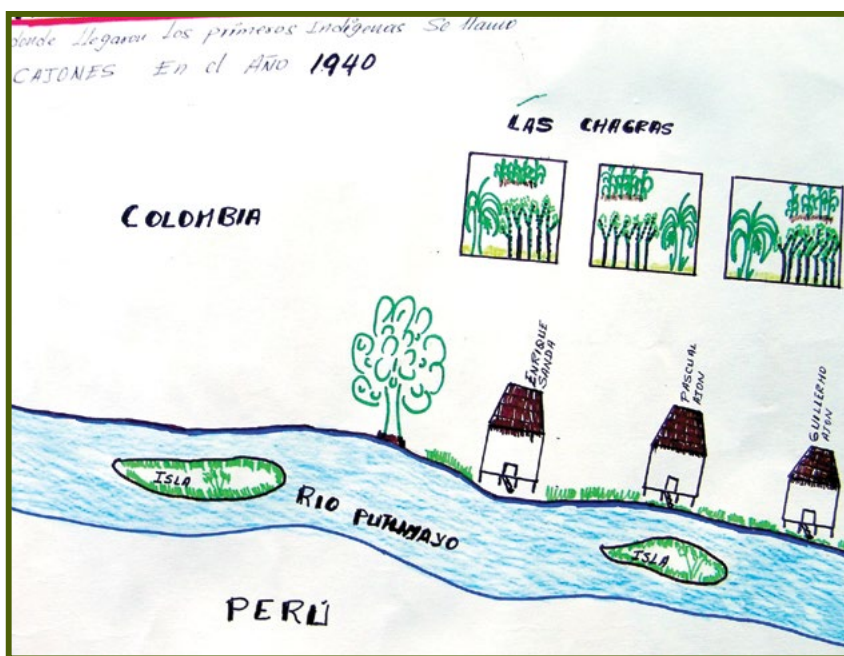 donde llegaron los primeros Indígenas Se llamo
CAJONES En el AÑO 1940
LAS CHAGRAS
COLOMBIA
ENRIQUE
SANDA
PASCUAL
AJON
GUILLERMO
AJON
ISLA
RIO PUTUMAYO
ISLA
PERÚ